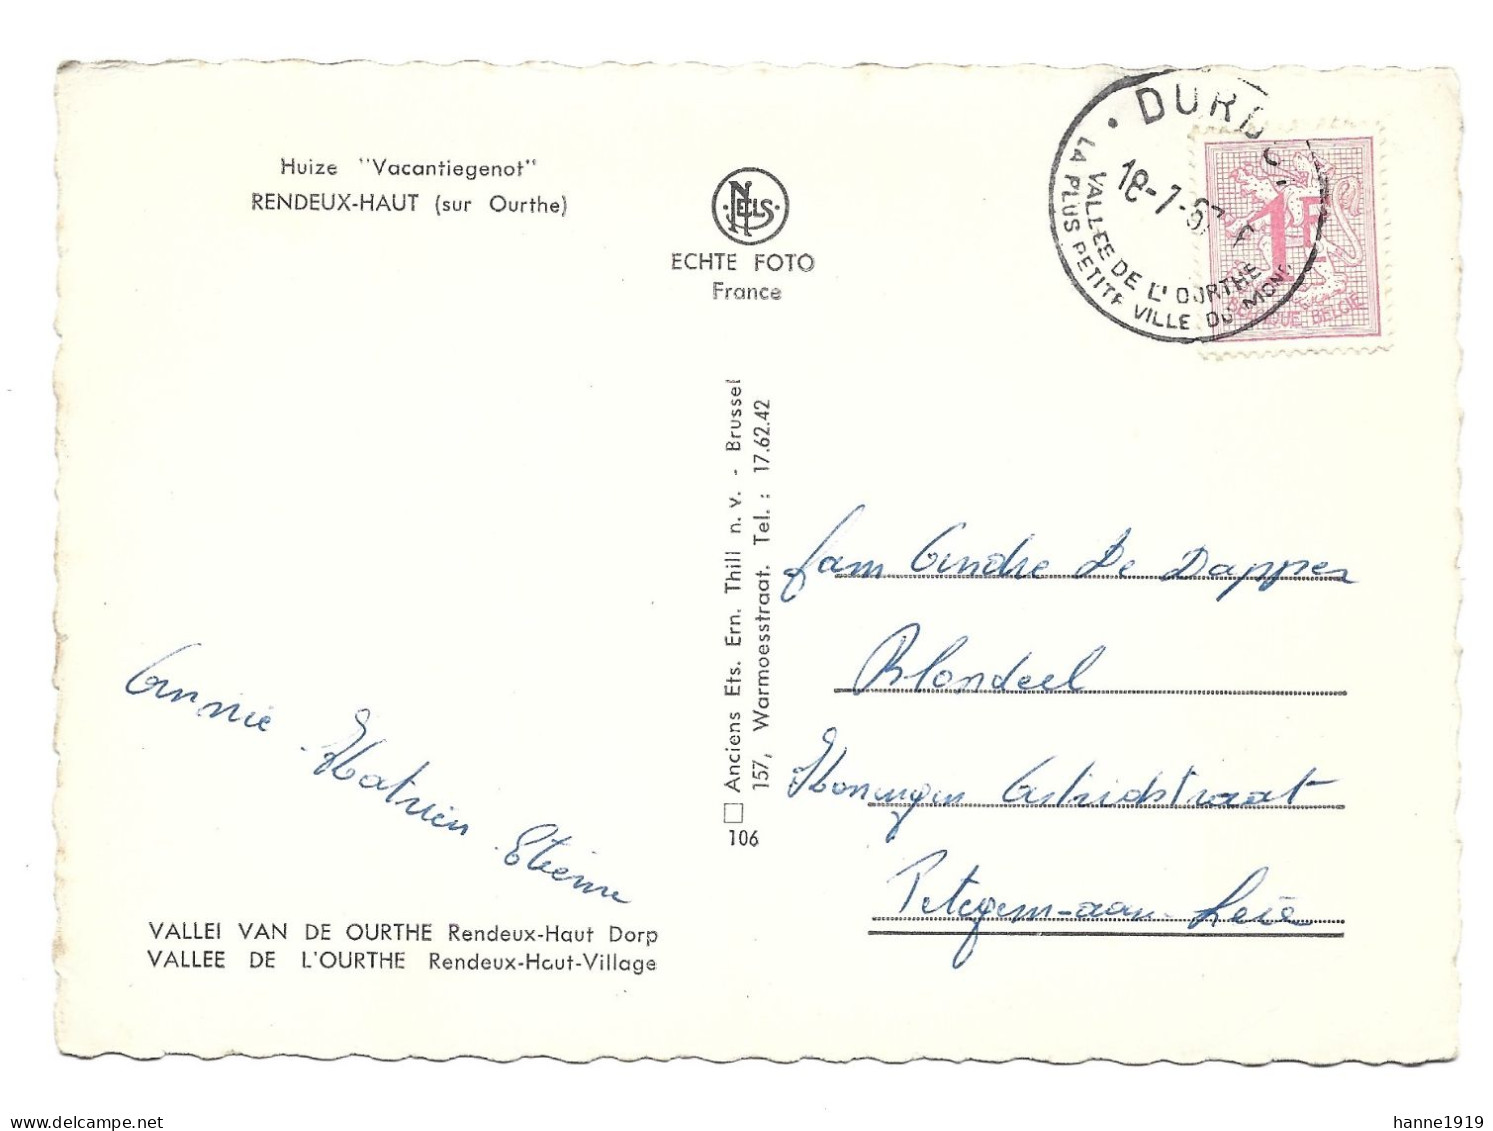 Huize "Vacantiegenot"
RENDEUX-HAUT (sur Ourthe)
NELS
ECHTE FOTO
France
DURBUY
18-7-67
VALLEE DE L'OURTHE
LA PLUS PETITE VILLE DU MONDE
1F
BELGIQUE BELGIE
Anciens Ets. Ern. Thill n.v. - Brussel
157, Warmoesstraat. Tel. : 17.62.42
106
fam Andre De Dapper
Blondeel
Koningin Astridstraat
Petegem-aan-Leie
Annie - Katrien - Etienne
VALLEI VAN DE OURTHE Rendeux-Haut Dorp
VALLEE DE L'OURTHE Rendeux-Haut-Village
www.delcampe.net
hanne1919